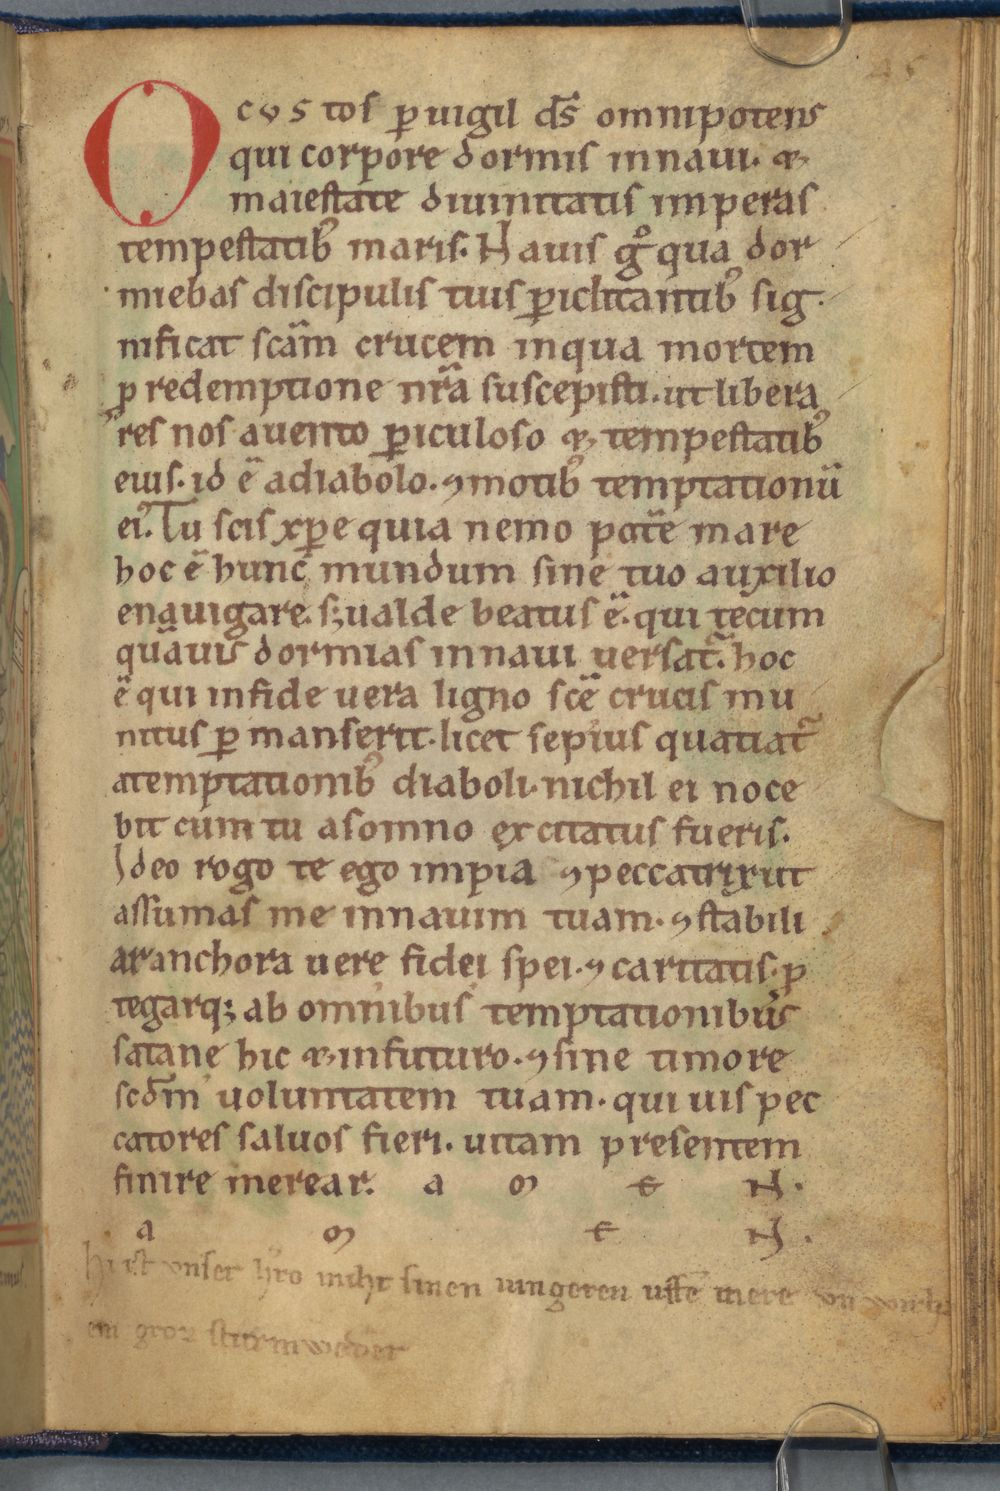 O cvstos ꝑuigil ds̄ omnipotens
qui corpore dormis innaui. &
maiestate diuinitatis imperas
tempestatibꝰ maris. Nauis gͦ qua dor
miebas discipulis tuis ꝑiclitantibꝰ sig
nificat scām crucem inqua mortem
ꝓ redemptione nr̄a suscepisti. ut libera
res nos auento ꝑiculoso & tempestatibꝰ
eius. id ē adiabolo. ⁊ motibꝰ temptationū
eiꝰ. Tu scis xp̄e quia nemo potē mare
hoc ē hunc mundum sine tuo auxilio
enauigare. sꝫ ualde beatus ē. qui tecum
quāuis dormias innaui uersat᷑. hoc
ē qui infide uera ligno scē crucis mu
nitus ꝑ manserit. licet sepius quatiat᷑
atemptationibꝰ diaboli. nichil ei noce
bit cum tu asomno excitatus fueris.
Ideo rogo te ego impia ⁊ peccatrix ut
assumas me innauim tuam. ⁊ stabili
ar anchora uere fidei spei. ⁊ caritatis. ꝓ
tegarqꝫ ab omnibus temptationibus
satane hic & infuturo. ⁊ sine timore
scdm̄ uoluntatem tuam. qui uis pec
catores saluos fieri. uitam presentem
finire merear. a m e N.
a m e N.
hi ist vnser hro niht sinen iungeren uffē mere vn
ein groz sturmweder